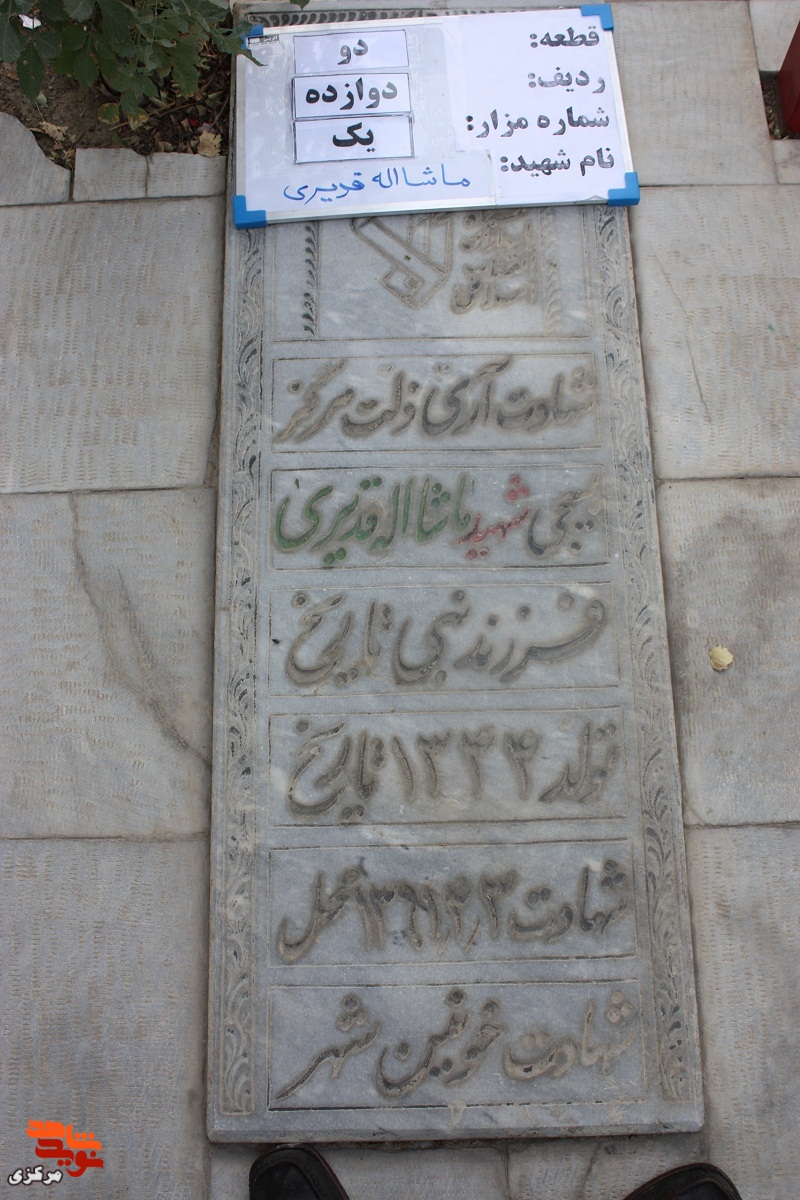 قطعه: دو
ردیف: دوازده
شماره مزار: یک
نام شهید: ماشااله قدیری
شهادت آری ذلت هرگز
بسیجی شهید ماشااله قدیری
فرزند نبی تاریخ
تولد ۱۳۴۴ تاریخ
شهادت ۱۳۶۱/۲/۳ محل
شهادت خونین شهر
نوید شاهد
مرکزی